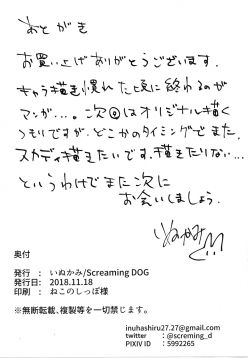 あとがき
お買い上げありがとうございます。
きゃら描き慣れた頃に終わるのが
マンガ...。次回はオリジナル描く
つもりですが、どこかのタイミングでまた、
スカディ描きたいです。描きたりない...
というわけでまた次に
お会いしましょう。
いぬかみ
奥付
発行 : いぬかみ/Screaming DOG
発行日: 2018.11.18
印刷 : ねこのしっぽ様
※無断転載、複製等を一切禁じます。
inuhashiru27.27@gmail.com
twitter : @screming_d
PIXIV ID : 5992265